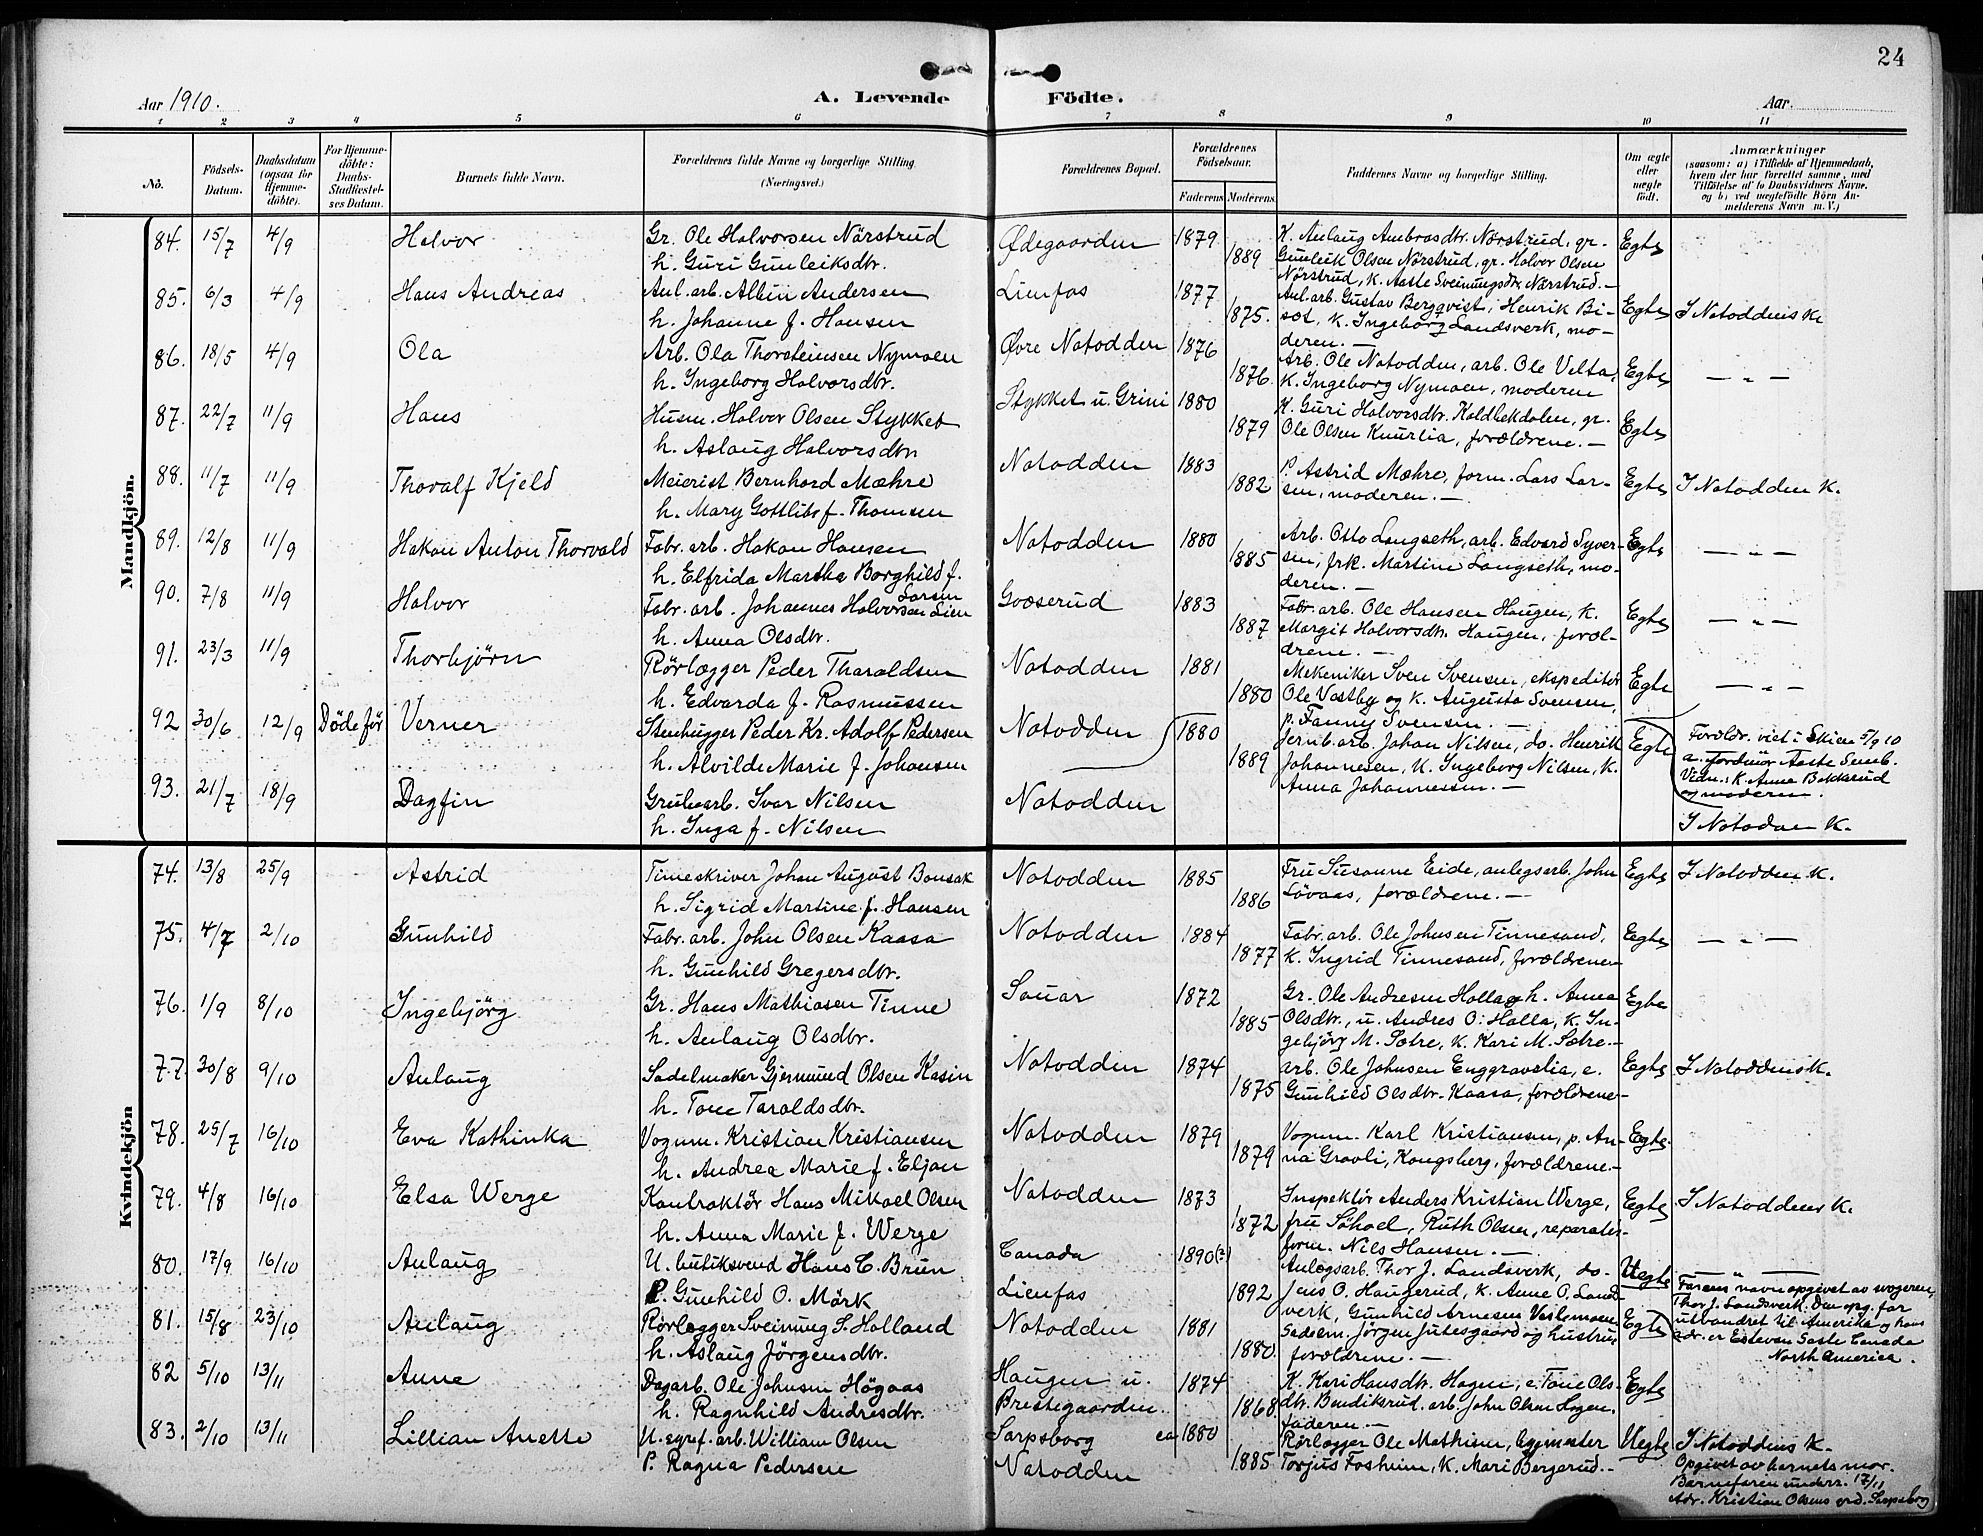 24
Aar 1910.
A. Levende Födte.
Aar
1 2 3 4 5 6 7 8 9 10 11
No.
Födsels-Datum.
Daabsdatum (ogsaa for Hjemme-döbte).
For Hjemme-döbte: Daabs-Stadfæstel-ses Datum.
Barnets fulde Navn.
Forældrenes fulde Navne og borgerlige Stilling. (Næringsvei.)
Forældrenes Bopæl.
Forældrenes Födselsaar.
Faderens Moderens
Faddernes Navne og borgerlige Stilling.
Om ægte eller uægte födt.
Anmærkninger
(saasom: a) i Tilfælde af Hjemmedaab, hvem der har forrettet samme, med Tilföielse af to Daabsvidners Navne. og b) ved uægtefödte Börn An-melderens Navn m. V.)
Mandkjön.
84. 15/7 4/9 Halvor Gr. Ole Halvorsen Nørstrud Ødegaarden 1879 K. Aulaug Ambrosdtr. Nørstrud, gr. Egte
h. Guri Gunleiksdtr. 1889 Gunleik Olsen Nørstrud, gr. Halvor Olsen
Nørstrud, k. Aaste Sveinungsdtr. Nørstrud.
85. 6/3 4/9 Hans Andreas Anl. arb. Albin Andersen Lienfos 1877 Anl. arb. Gustav Bergqvist, Henrik Bi- Egte I Notoddens K.
h. Johanne f. Hansen 1875. sat, k. Ingeborg Landsverk, mo-
deren.
86. 18/5 4/9 Ola Arb. Ola Thorsteinsen Nymoen Øvre Notodden 1876 Arb. Ole Notodden, arb. Ole Velta, Egte — „ —
h. Ingeborg Halvorsdtr. 1876. K. Ingeborg Nymoen, moderen
87. 22/7 11/9 Hans Husm. Halvor Olsen Stykket Stykket u. Grini 1880 K. Guri Halvorsdtr. Koldbekdalen, gr. Egte
h. Aslaug Halvorsdtr 1879 Ole Olsen Knurlia, forældrene.
88. 11/7 11/9 Thoralf Kjeld Meierist Bernhard Mæhre Notodden 1883 P. Astrid Mæhre, form. Lars Lar- Egte I Notodden K.
h. Mary Gottlibe f. Thomsen 1882 sen, moderen.
89. 12/8 11/9 Hakon Anton Thorvald Fabr. arb. Hakon Hansen Notodden 1880 Arb. Otto Langseth, arb. Edvard Syver- Egte — „ —
h. Elfrida Martha Borghild f. Larsen 1885 sen, frk. Martine Langseth, mo-
deren.
90. 7/8 11/9 Halvor Fabr. arb. Johannes Halvorsen Lien Gvæserud 1883 Fabr. arb. Ole Hansen Haugen, K. Egte — „ —
h. Anna Olsdtr. 1887 Margit Halvorsdtr. Haugen, foræl-
drene.
91. 23/3 11/9 Thorbjörn Rörlægger Peder Tharaldsen Notodden 1881 Mekaniker Sven Svensen, ekspeditör Egte — „ —
h. Edvarda f. Rasmussen 1880 Ole Vastby og k. Augusta Svensen,
p. Fanny Svensen.
92 30/6 12/9 Döde för Verner Stenhugger Peder Kr. Adolf Pedersen Notodden 1880 Jernb. arb. Johan Nilsen, do. Henrik Egte Foræld. viet i Skien 5/9 10
h. Alvilde Marie f. Johansen 1889 Johannesen, K. Ingeborg Nilsen, K. a. Jordmor Aaste Semb.
Anna Johannessen. Vidn.: K. Anna Bekksrud
og moderen.
93. 21/7 18/9 Dagfin Grubearb. Ivar Nilsen Notodden I Notodden K.
h. Inga f. Nilsen
Kvindekjön
74. 13/8 25/9 Astrid Timeskriver Johan August Bonsak Notodden 1885 Fru Susanne Eide, anlegsarb. John Egte I Notodden K.
h. Sigrid Martine f. Hansen 1886 Lövaas, forældrene.
75. 4/7 2/10 Gunhild Fabr. arb. John Olsen Kaasa Notodden 1884 Fabr. arb. Ole Johnsen Tinnesand, Egte — „ —
h. Gunhild Gregersdtr. 1877 k. Ingrid Tinnesand, forældrene
76. 1/9 8/10 Ingebjörg Gr. Hans Mathiasen Tinne Sauar 1872 Gr. Ole Andresen Holla, h. Anna Egte
h. Aulaug Olsdtr. 1885 Olsdtr., u. Andres O. Holla, k. In-
gebjörg M. Sætre, k. Kari M. Sætre.
77. 30/8 9/10 Aulaug Sadelmaker Gjermund Olsen Kasin Notodden 1874 arb. Ole Johnsen Enggravslia, e. Egte I Notoddens K.
h. Tone Taraldsdtr. 1875 Gunhild Olsdtr. Kaasa, forældrene
78. 25/7 16/10 Eva Kathinka Vognm. Kristian Kristiansen Notodden 1879 Vognm. Karl Kristiansen, p. An- Egte
h. Andrea Marie f. Eljan 1879 na Graali, Kongsberg, forældrene.
79. 4/8 16/10 Elsa Werge Kontraktör Hans Mikael Olsen Notodden 1873 Inspektör Anders Kristian Werge, Egte I Notoddens K.
h. Anna Marie f. Werge 1872 fru Söhoel, Ruth Olsen, reparatör-
form. Nils Hansen.
80. 17/9 16/10 Aulaug U. butiksvend Hans C. Brun Canada 1890(?) Anlægsarb. Thor J. Landsverk, do. Uegte — „ —
P. Gunhild O. Mörk Lienfos 1892 Jens O. Haugerud, k. Anne O. Land- Farens navn opgivet av worgeren,
verk, Gunhild Arnesen Vestemoen Thor J. Landsverk. Den opg. far
81. 15/8 23/10 Aulaug Rörlægger Sveinung S. Holland Notodden 1881 Sadelm. Jörgen Jutesgaard og hustru, Egte utvandret til Amerika og hans
h. Aslaug Jörgensdtr. 1880. forældrene. adr. er Estevan Saste Canada
North America.
82 5/10 13/11 Anne Dagarb. Ole Johnsen Högaas Haugen u. 1874 K. Kari Hansdtr. Hagen, e. Tone Ols- Egte
h. Ragnhild Andresdtr. Prestegaarden 1868 dtr. Bendiksrud, arb. John Olsen Hagen,
faderen.
83. 2/10 13/11 Lillian Anette U. sgref. arb. William Olsen Sarpsborg ca 1880 Rörlægger Ole Mathisen, bygmester Uegte I Notoddens K.
P. Ragna Pedersen Notodden 1885 Torjus Fosheim, K. Mari Bergerud. Opgivet av barnets mor.
Barnefaren underr. 17/11
Adr. Kristian Olsens grd. Sarpsborg